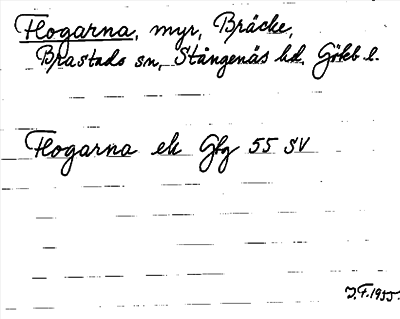 Flogarna, myr, Bräcke,
Brastads sn, Stångenäs hd, Götb l.
Flogarna ek Gbg 55 SV
J.F. 1955.